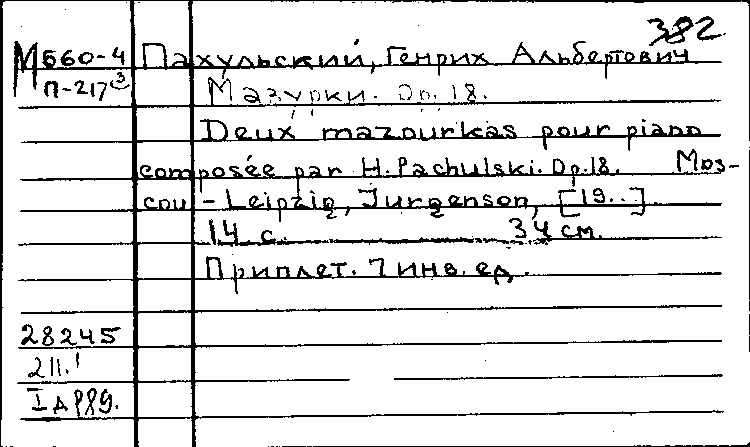 382
М560-4 Пахульский, Генрих Альбертович
П-217³ Мазурки. Op.18.
Deux mazourkas pour piano
composée par H. Pachulski. Op.18. Mos-
cou - Leipzig, Jurgenson, [19..].
14 с. 34 см.
Приплет. 7 инв. ед.
28245
211.